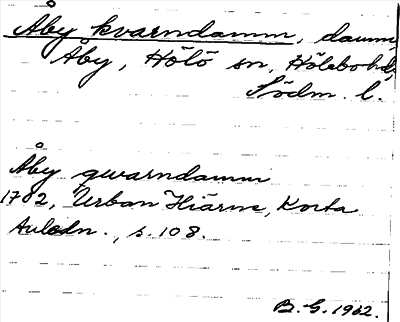 Åby kvarndamm, damm,
Åby, Hölö sn, Hölebo hd,
Södm. l.
Åby qwarndamm
1782, Urban Hiärne, Korta
Anledn., s. 108.
B. G. 1962.